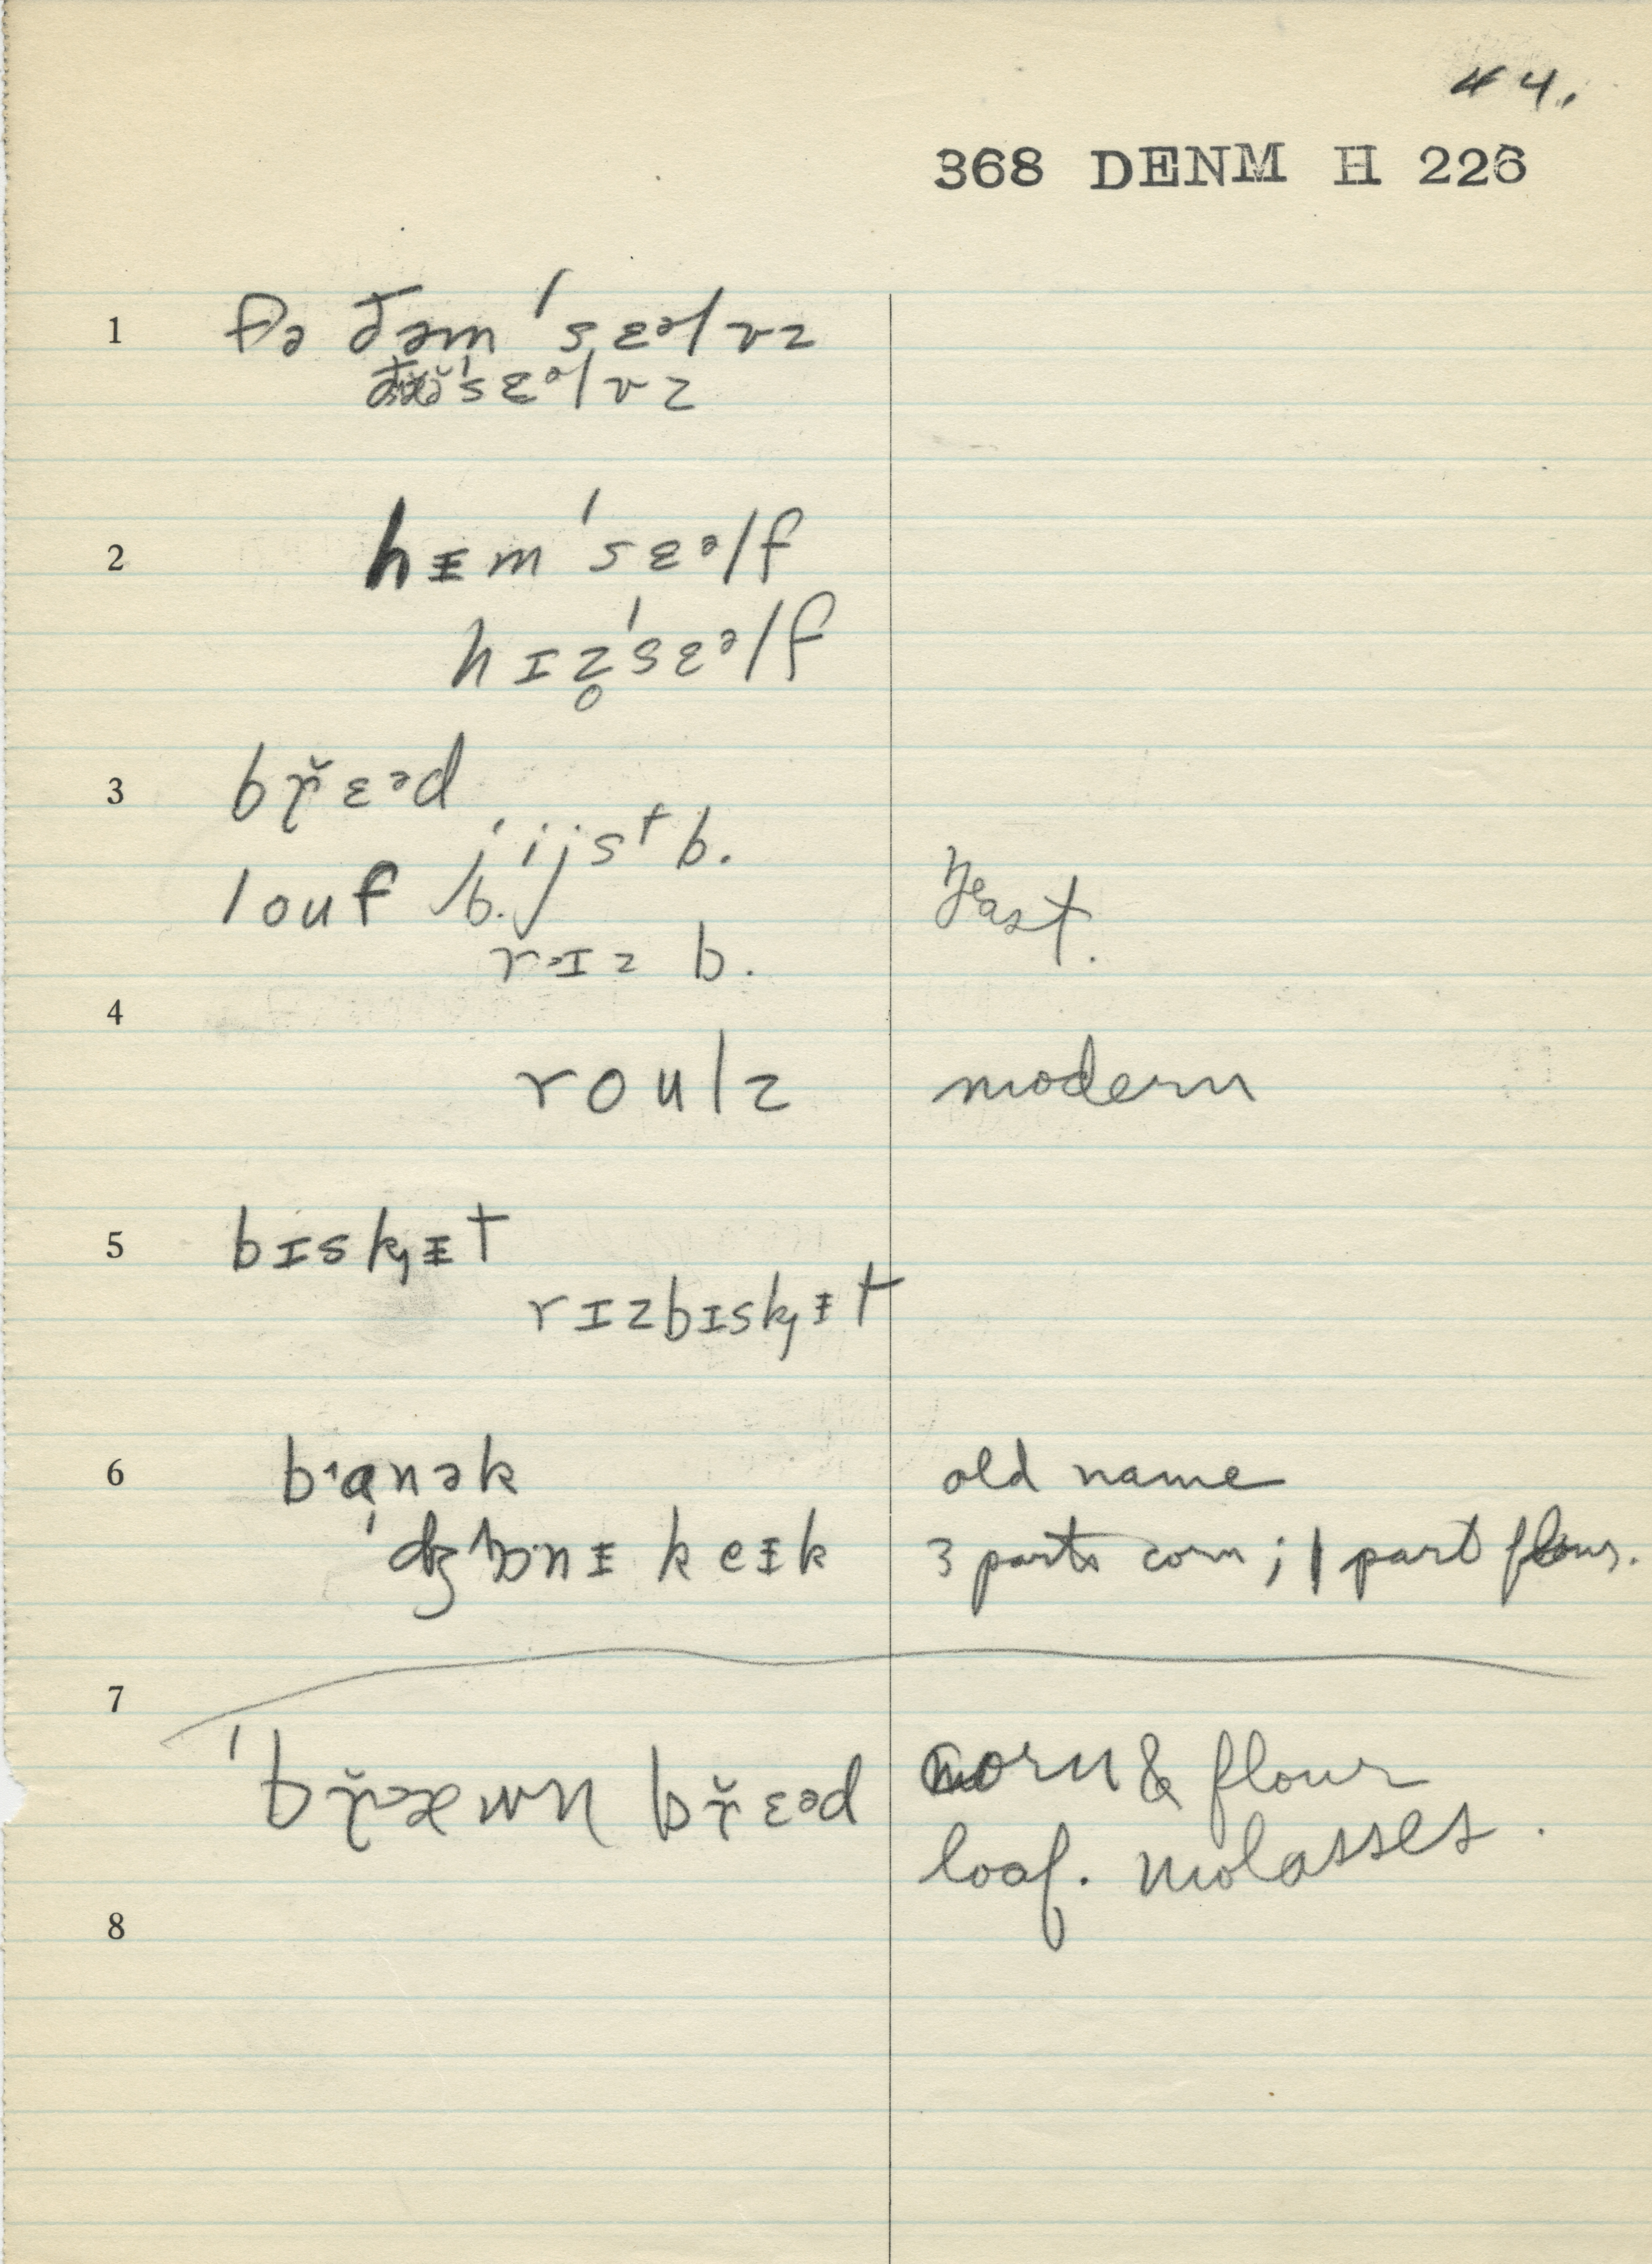 44.
368 DENM H 226
1 ðəm ˈsɛᵊlvz
ˈsɛᵊlvz
2 hᵻm ˈsɛᵊlf
hɪz̥ˈsɛᵊlf
3 bɾ̌ɛᵊd
ˈjijst b.
louf b. yeast.
rɪz b.
4
roulz modern
5 bɪsk̡ᵻt
rɪzbɪsk̡ᵻt
6 bɑnək old name
ˈdʒɒnᵻ keᵻk 3 parts corn; 1 part flour.
7
ˈbř̨æwn břɛᵊd corn & flour
loaf. molasses.
8